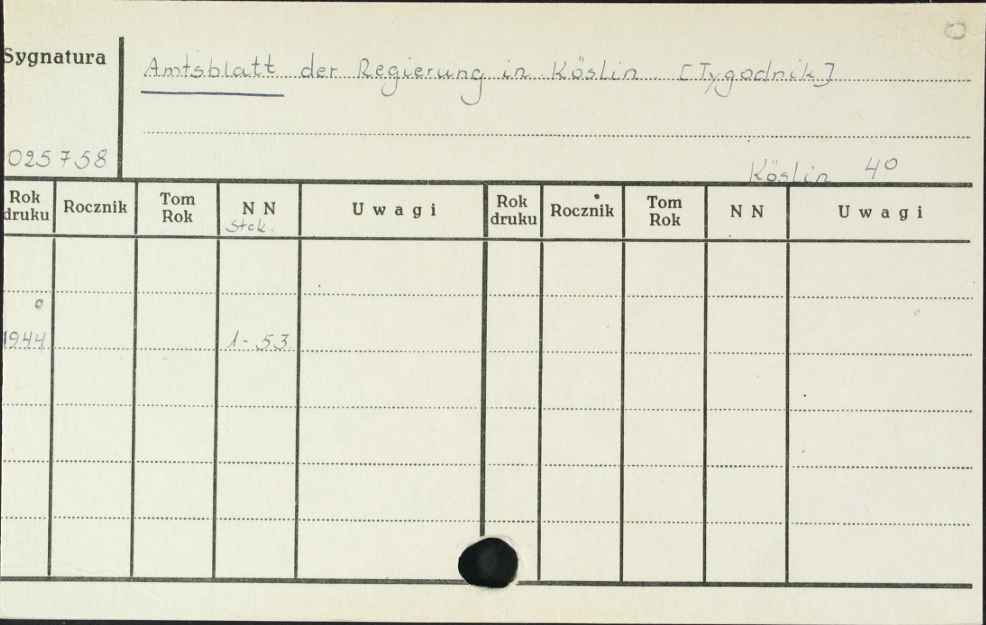 Sygnatura
Amtsblatt der Regierung in Köslin [Tygodnik]
025758
Köslin 4º
Rok druku Rocznik Tom Rok NN Uwagi Rok druku Rocznik Tom Rok NN Uwagi
1944 1-53